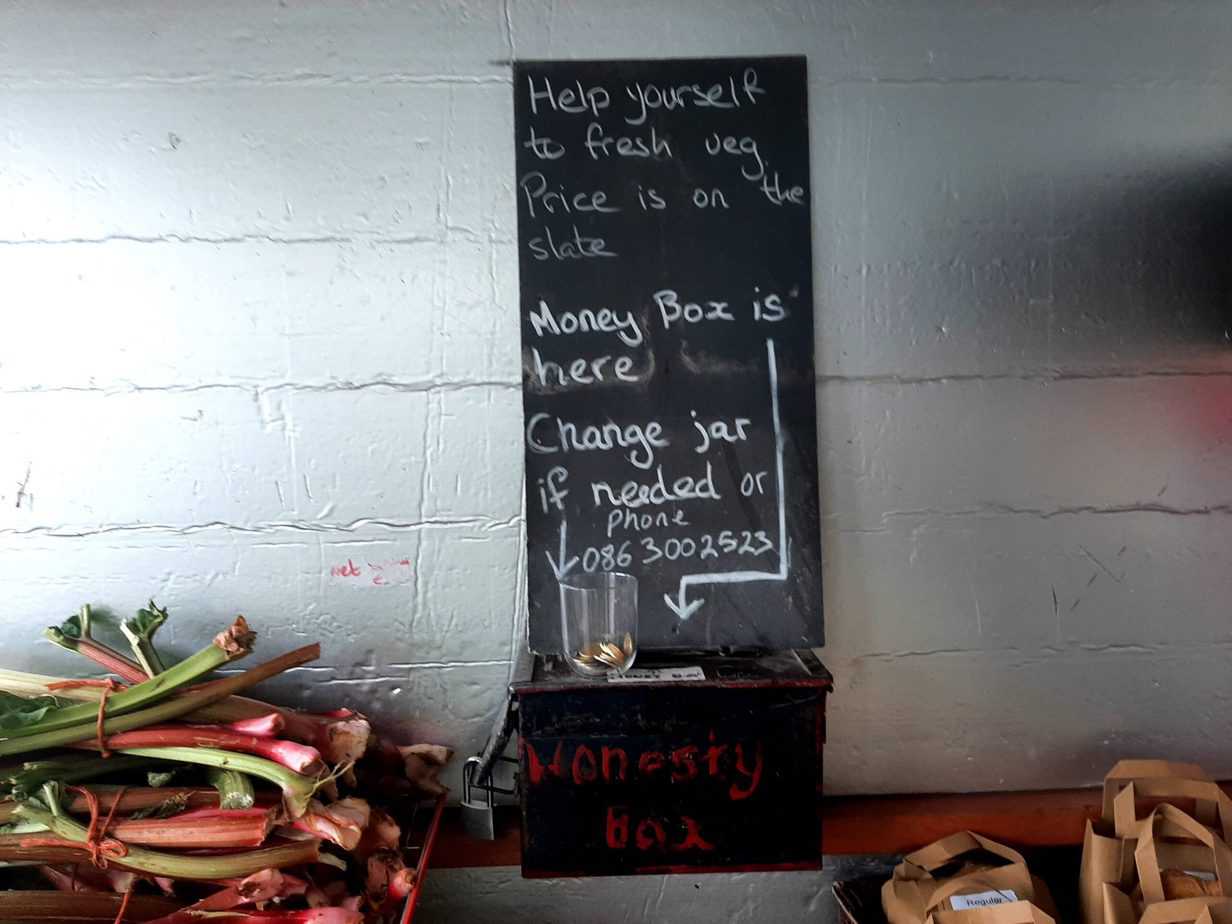 Help yourself
to fresh veg.
Price is on the
slate
Money Box is
here
Change jar
if needed or
phone
086 3002523
wet
Honesty
Box
Regular